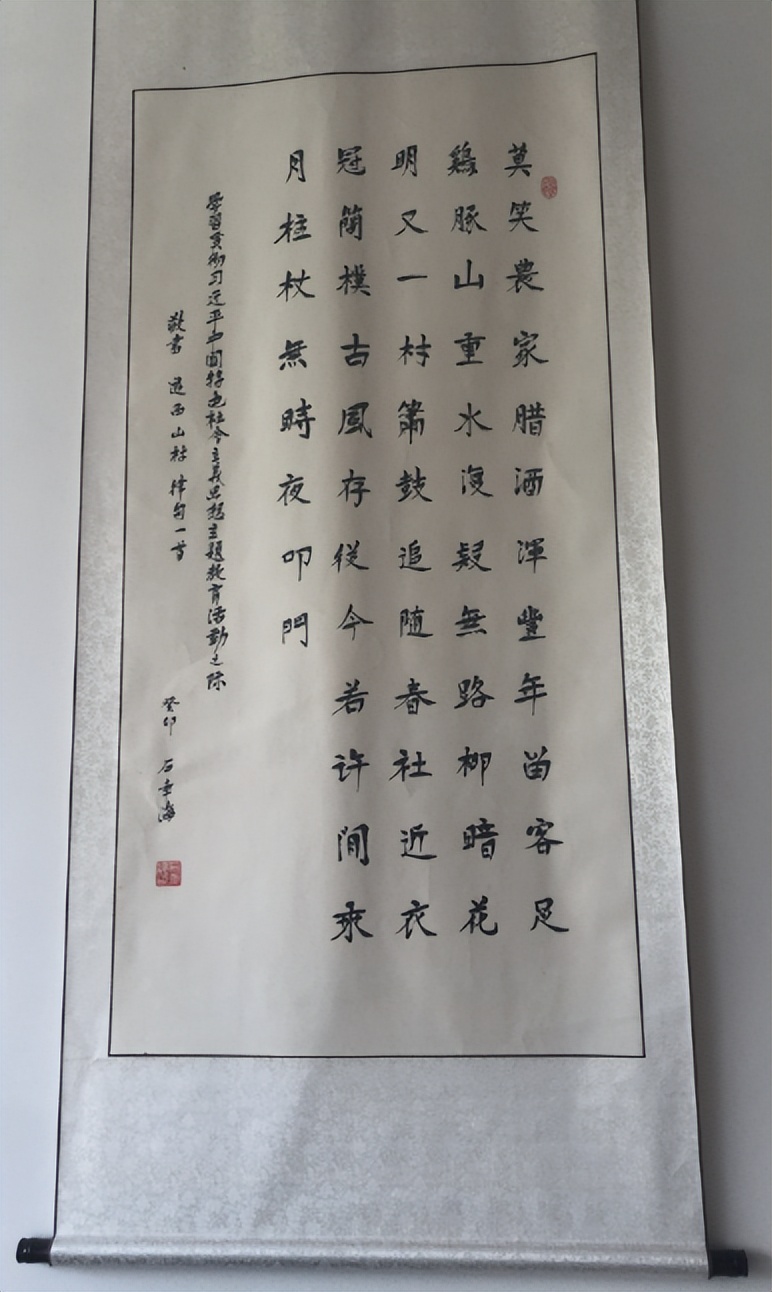 莫笑農家腊酒渾豐年畄客足
鷄豚山重水復疑無路栁暗花
明又一村箫鼓追随春社近衣
冠簡樸古風存從今若许閒来
月柱杖無時夜叩門
学習贯彻习近平中國特色社会主義思想主題教育活動之际
敬書 遊西山村 律句一首
癸卯 石 海